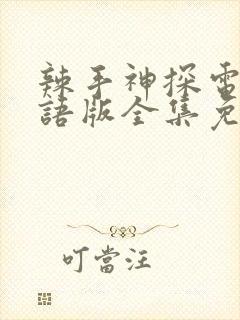 辣手神探電
語版全集免
叮當汪